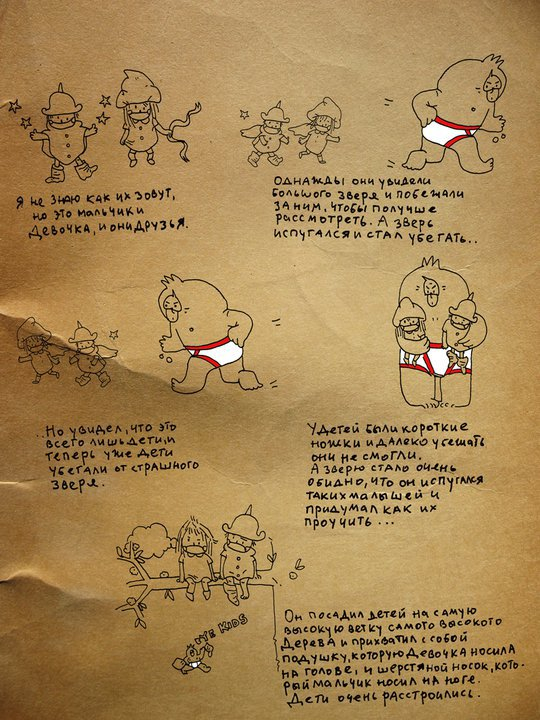 Я не знаю как их зовут,
но это мальчики
девочка, и они друзья.
Однажды они увидели
большого зверя и побежали
за ним, чтобы получше
рассмотреть. А зверь
испугался и стал убегать..
..Но увидел, что это
всего лишь дети, и
теперь уже дети
убегали от страшного
зверя.
У детей были короткие
ножки и далеко убежать
они не смогли.
А зверю стало очень
обидно, что он испугался
таких малышей и
придумал как их
проучить ...
BYE KIDS
Он посадил детей на самую
высокую ветку самого высокого
дерева и прихватил с собой
подушку, которую девочка носила
на голове, и шерстяной носок, кото-
рый мальчик носил на ноге.
Дети очень расстроились.